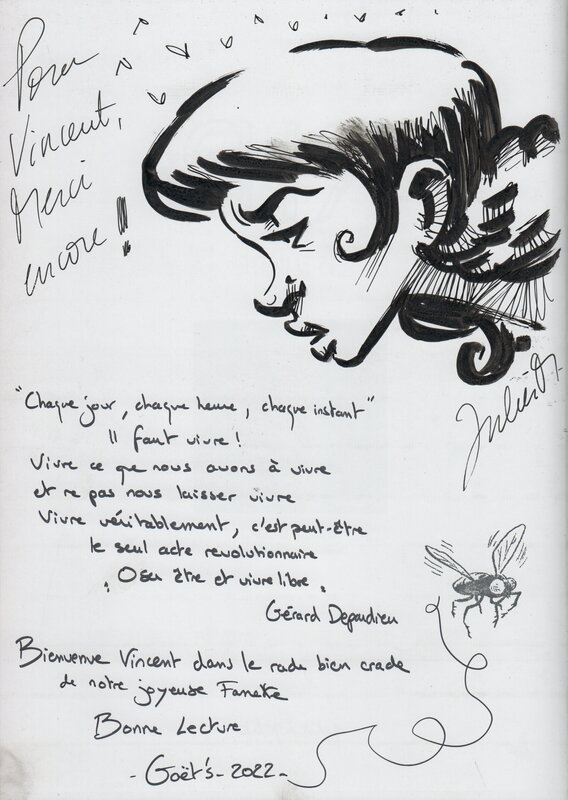 Pour
Vincent,
Merci
encore !
"Chaque jour, chaque heure, chaque instant"
Il faut vivre !
Vivre ce que nous avons à vivre
et ne pas nous laisser vivre
Vivre véritablement, c'est peut-être
le seul acte revolutionnaire
"Oser être et vivre libre"
Gérard Depardieu
Bienvenue Vincent dans le rade bien crade
de notre joyeuse Fanette
Bonne Lecture
- Goët's - 2022 -